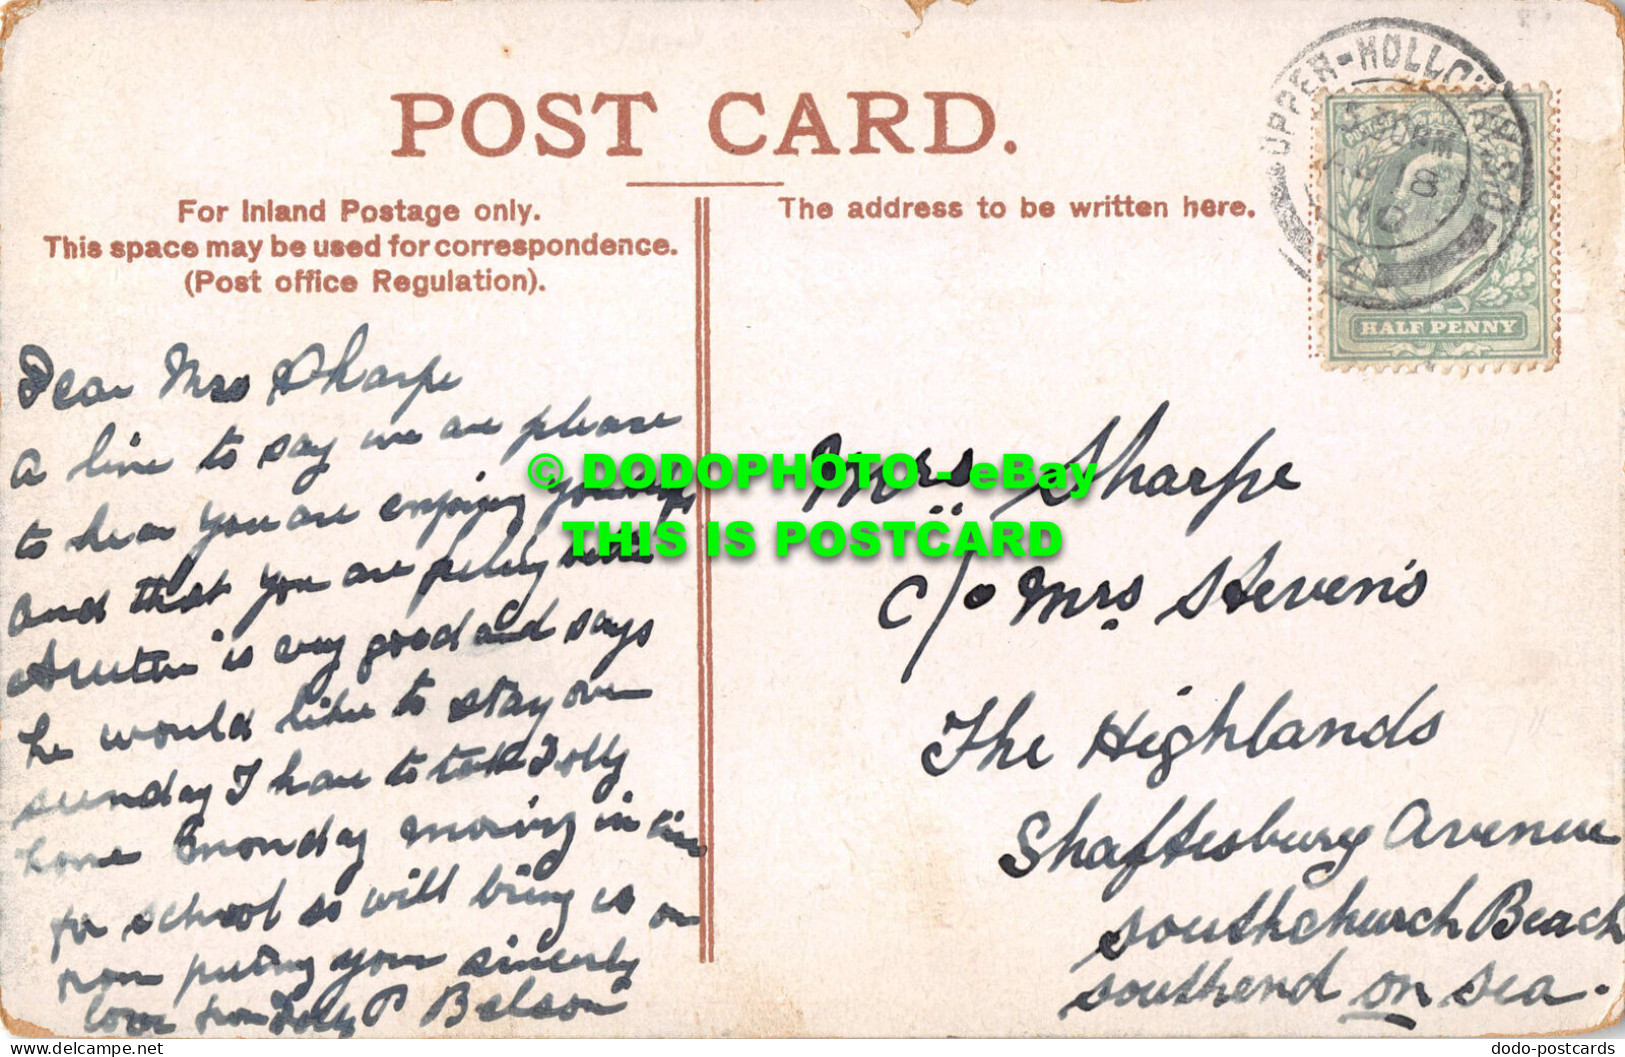 POST CARD.
For Inland Postage only.
This space may be used for correspondence.
(Post office Regulation).
The address to be written here.
UPPER-HOLLOWAY
HALF PENNY
Dear Mrs Sharpe
A line to say we are please
to hear you are enjoying yourself
and that you are feeling
is very good and says
he would like to stay over
sunday I have to take Dolly
home monday morning in time
for school so will bring
sincerely
love from Dolly P Belson
Mrs Sharpe
c/o Mrs Steven's
The Highlands
Shaftesbury Avenue
Southchurch Beach
Southend on Sea.
© DODOPHOTO - eBay
THIS IS POSTCARD
delcampe.net
dodo-postcards